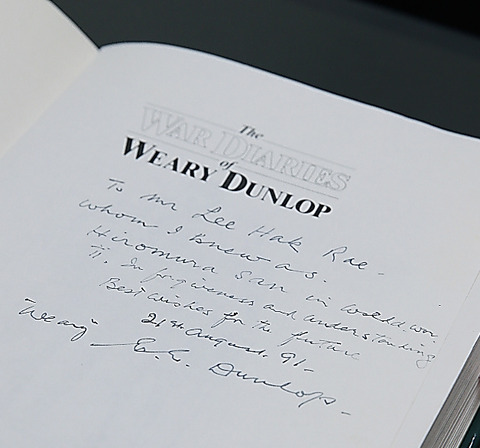 The
WAR DIARIES
of
WEARY DUNLOP
To Mr Lee Hak Rae -
whom I knew as.
Hiromura San in world war
II. In forgiveness and understanding
Best wishes for the future
21st August, 91-
"Weary" E.E. Dunlop-